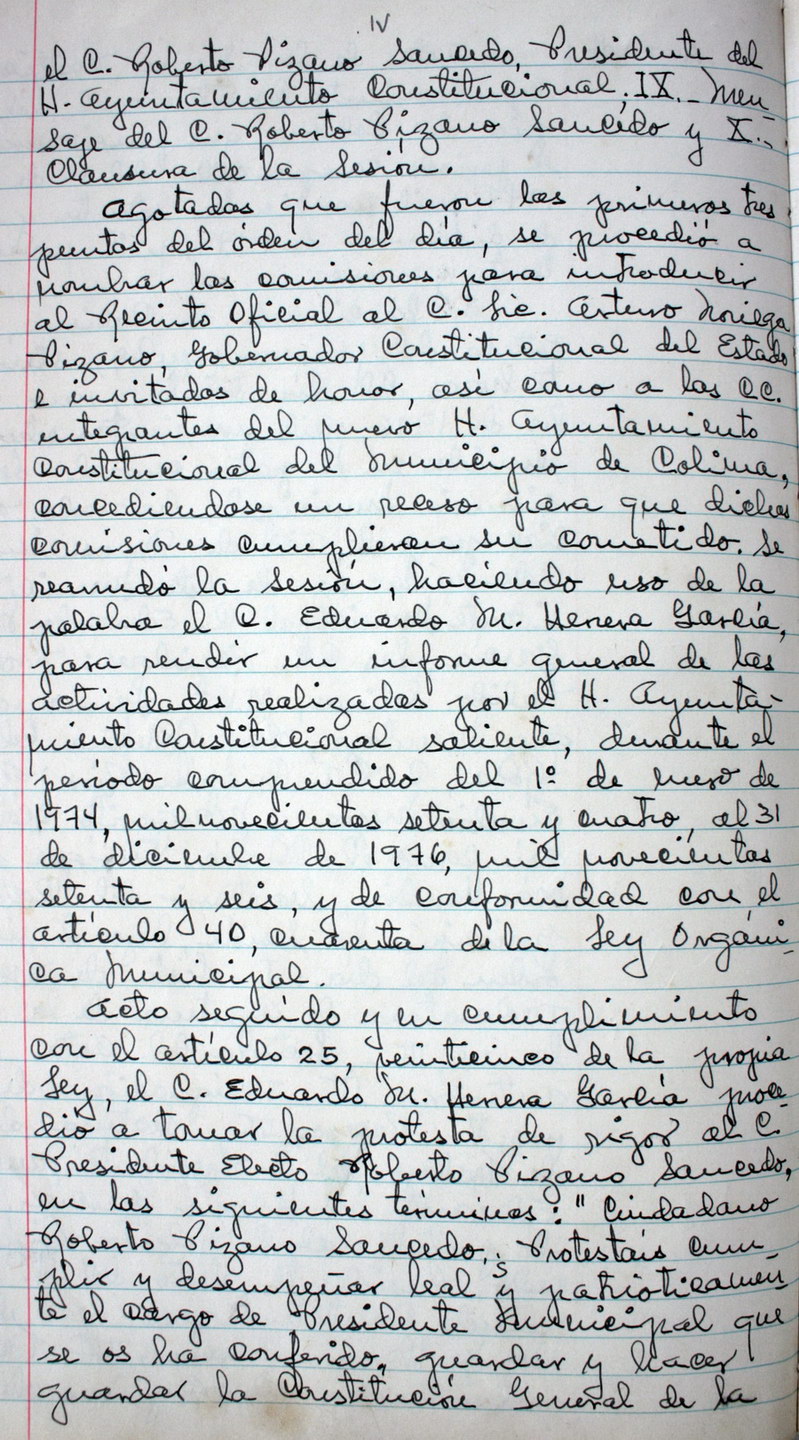 IV
el C. Roberto Pizano Saucedo, Presidente del
H. Ayuntamiento Constitucional; IX.- Men-
saje del C. Roberto Pizano Saucedo y X.-
Clausura de la Sesión.
Agotadas que fueron los primeros tres
puntos del órden del día, se procedió a
nombrar las comisiones para introducir
al Recinto Oficial al C. Lic. Arturo Noriega
Pizano, Gobernador Constitucional del Estado
e invitados de honor, así como a los CC.
integrantes del nuevo H. Ayuntamiento
Constitucional del Municipio de Colima,
concediendose un receso para que dichas
comisiones cumplieran su cometido. Se
reanudó la Sesión, haciendo uso de la
palabra el C. Eduardo M. Herrera García,
para rendir un informe general de las
actividades realizadas por el H. Ayunta-
miento Constitucional saliente, durante el
período comprendido del 1º de enero de
1974, mil novecientos setenta y cuatro, al 31
de diciembre de 1976, mil novecientos
setenta y seis, y de conformidad con el
artículo 40, cuarenta de la Ley Orgáni-
ca Municipal.
Acto seguido y en cumplimiento
con el artículo 25, veinticinco de la propia
Ley, el C. Eduardo M. Herrera García proce-
dió a tomar la protesta de rigor al C.
Presidente Electo Roberto Pizano Saucedo,
en los siguientes términos: "Ciudadano
Roberto Pizano Saucedo, ¿Protestais cum-
plir y desempeñar leal y patrioticamen-
te el cargo de Presidente Municipal que
se os ha conferido, guardar y hacer
guardar la Constitución General de la